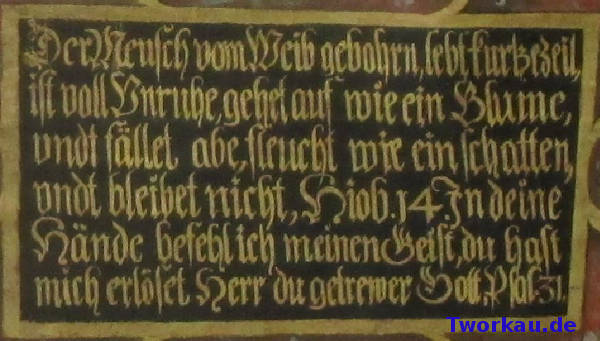 Der Mensch vom Weib gebohrn, lebt kurtze Zeit,
ist voll Vnruhe, gehet auf wie ein Blume,
vndt fället abe, fleucht wie ein schatten,
vndt bleibet nicht, Hiob. 14. In deine
Hände befehl ich meinen Geist, du hast
mich erlöset Herr du getrewer Gott, Psal. 31.
Tworkau.de